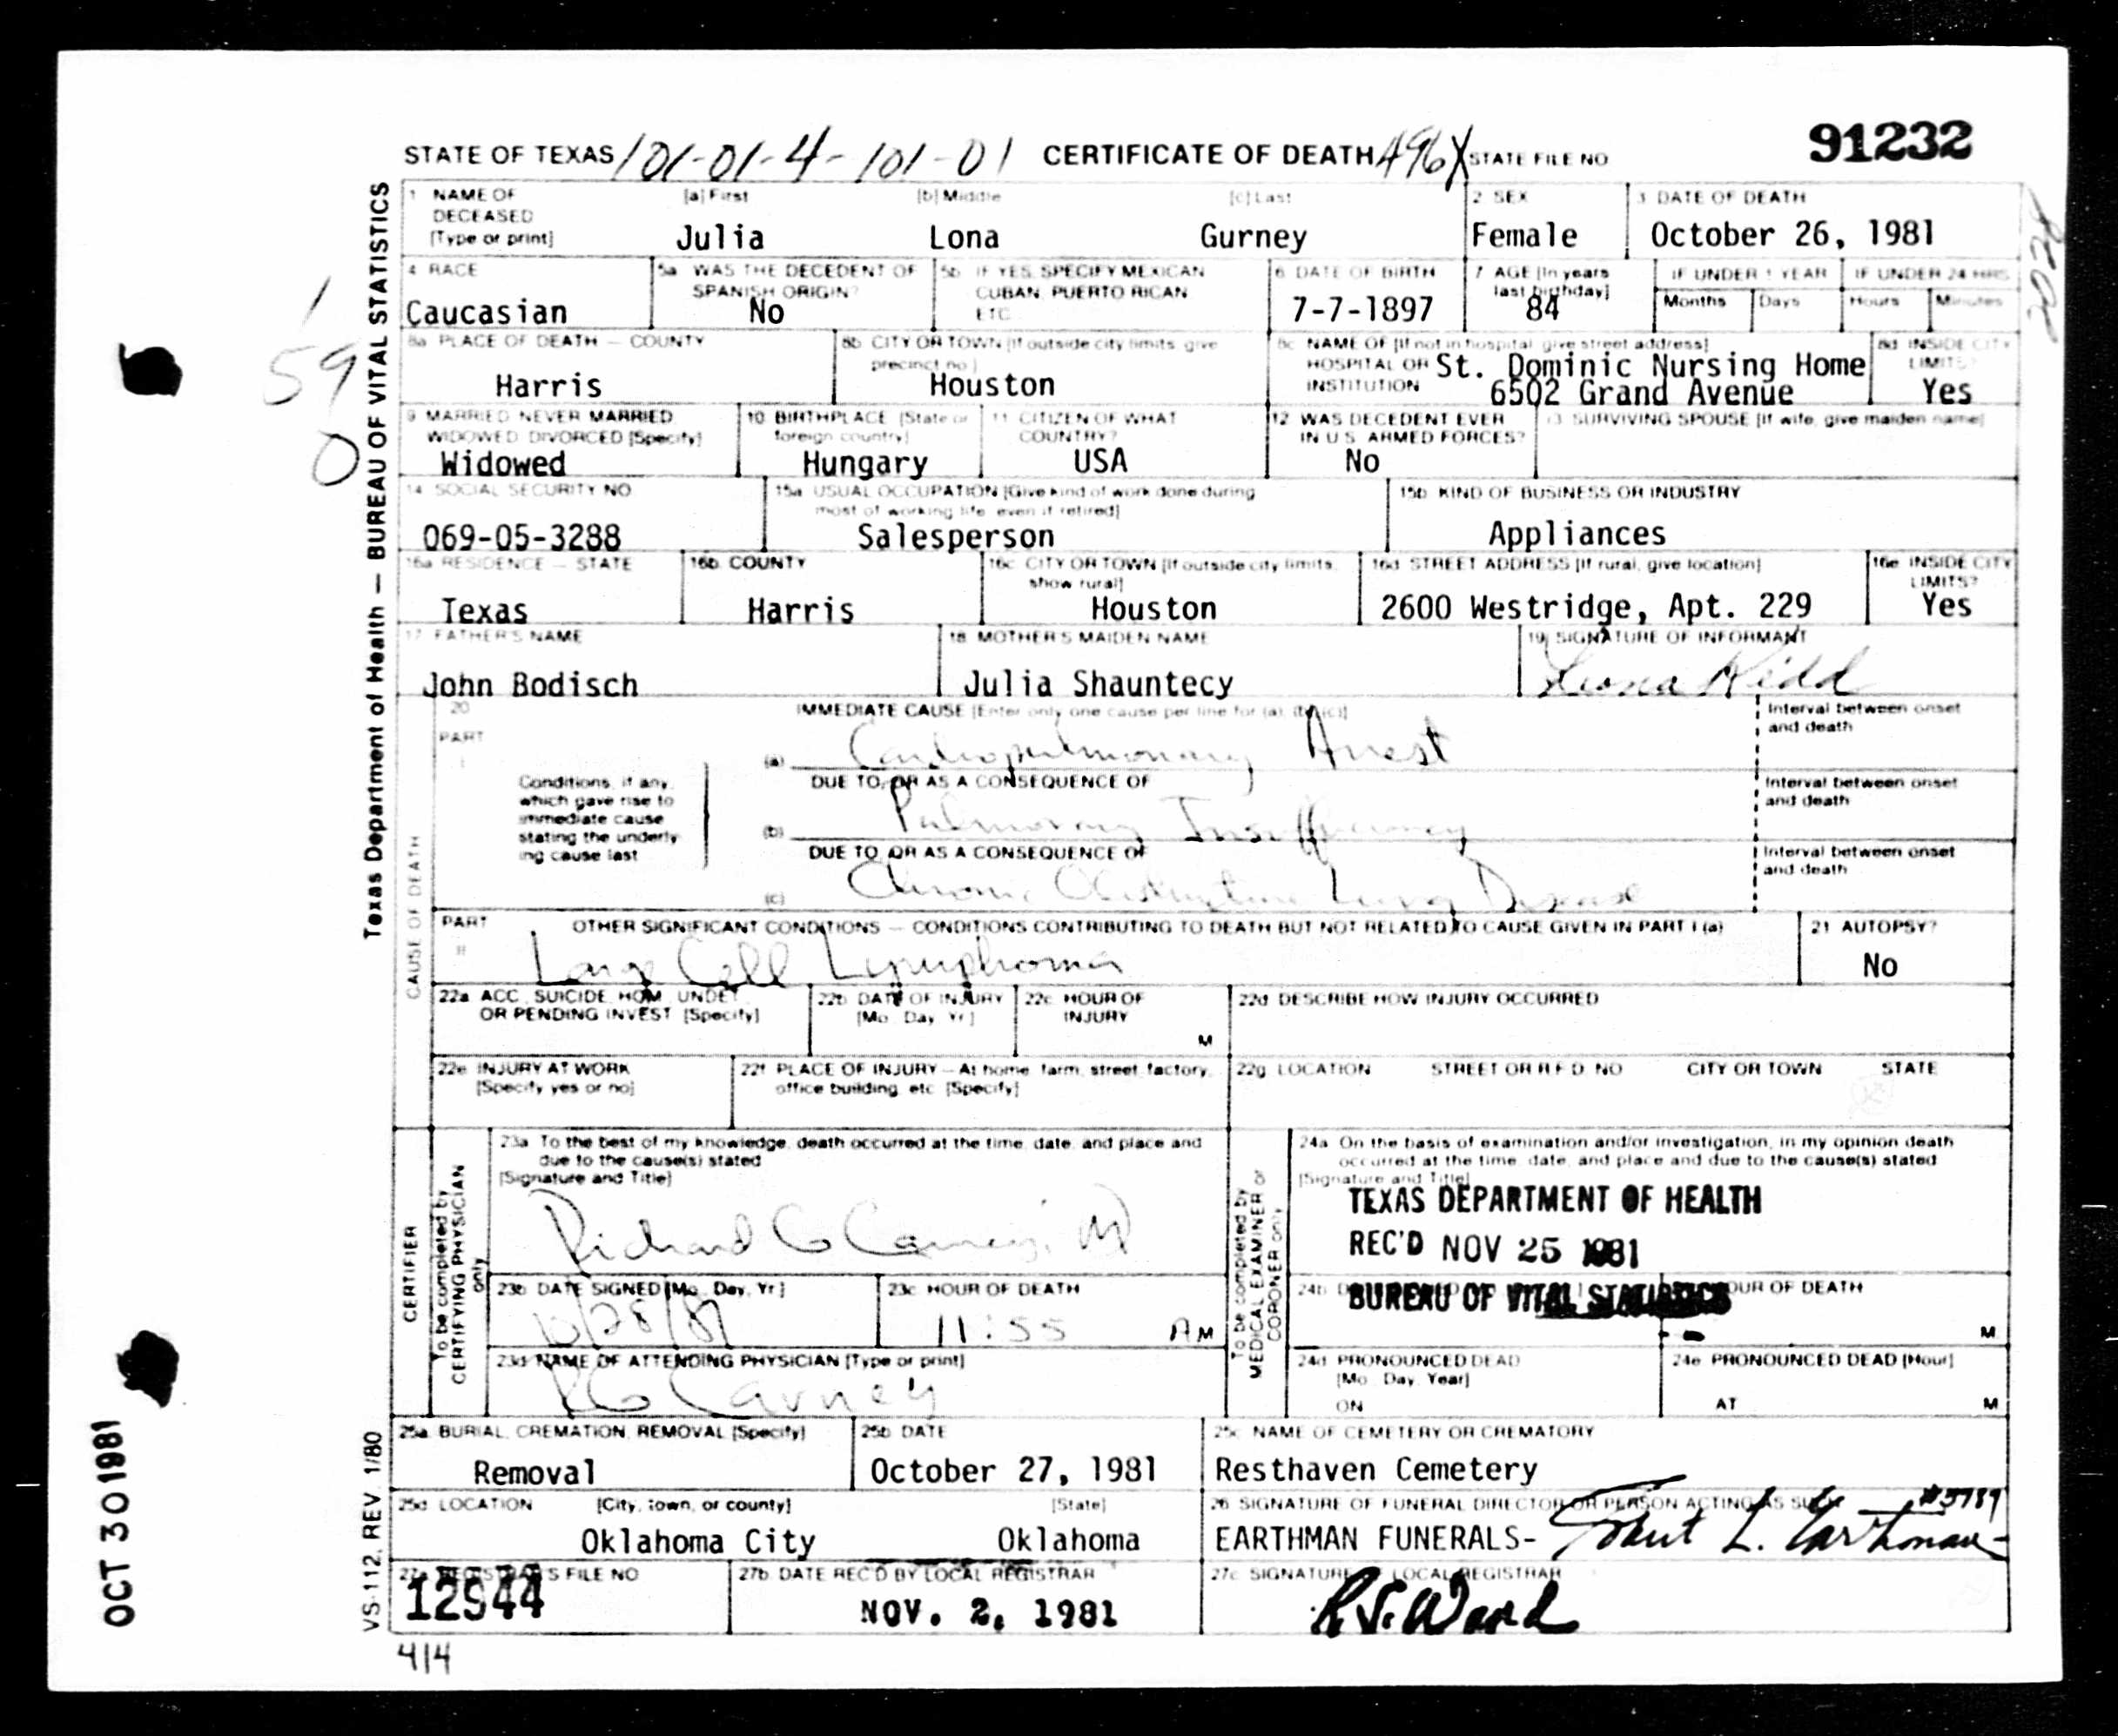 91232
STATE OF TEXAS 101-01-4-101-01 CERTIFICATE OF DEATH 496X STATE FILE NO
Texas Department of Health — BUREAU OF VITAL STATISTICS
1 NAME OF DECEASED [Type or print] [a] First [b] Middle [c] Last
Julia Lona Gurney
2 SEX
Female
3 DATE OF DEATH
October 26, 1981
4 RACE
Caucasian
5a WAS THE DECEDENT OF SPANISH ORIGIN?
No
5b IF YES, SPECIFY MEXICAN CUBAN, PUERTO RICAN ETC
6 DATE OF BIRTH
7-7-1897
7 AGE [In years last birthday]
84
IF UNDER 1 YEAR
Months Days
IF UNDER 24 HRS
Hours Minutes
8a PLACE OF DEATH — COUNTY
Harris
8b CITY OR TOWN [If outside city limits, give precinct no]
Houston
8c NAME OF [If not in hospital, give street address]
HOSPITAL OR INSTITUTION
St. Dominic Nursing Home
6502 Grand Avenue
8d INSIDE CITY LIMITS?
Yes
9 MARRIED, NEVER MARRIED, WIDOWED, DIVORCED [Specify]
Widowed
10 BIRTHPLACE [State or foreign country]
Hungary
11 CITIZEN OF WHAT COUNTRY?
USA
12 WAS DECEDENT EVER IN U.S. ARMED FORCES?
No
13 SURVIVING SPOUSE [If wife, give maiden name]
14 SOCIAL SECURITY NO
069-05-3288
15a USUAL OCCUPATION [Give kind of work done during most of working life, even if retired]
Salesperson
15b KIND OF BUSINESS OR INDUSTRY
Appliances
16a RESIDENCE — STATE
Texas
16b COUNTY
Harris
16c CITY OR TOWN [If outside city limits, show rural]
Houston
16d STREET ADDRESS [If rural, give location]
2600 Westridge, Apt. 229
16e INSIDE CITY LIMITS?
Yes
17 FATHER'S NAME
John Bodisch
18 MOTHER'S MAIDEN NAME
Julia Shauntecy
19 SIGNATURE OF INFORMANT
Kidd
CAUSE OF DEATH
20 PART I
IMMEDIATE CAUSE [Enter only one cause per line for (a), (b), (c)]
Conditions, if any, which gave rise to immediate cause stating the underlying cause last
(a) Cardiopulmonary Arrest
DUE TO, OR AS A CONSEQUENCE OF
(b) Pulmonary Insufficiency
DUE TO, OR AS A CONSEQUENCE OF
(c) Chronic Obstructive Lung Disease
Interval between onset and death
Interval between onset and death
Interval between onset and death
PART II
OTHER SIGNIFICANT CONDITIONS — CONDITIONS CONTRIBUTING TO DEATH BUT NOT RELATED TO CAUSE GIVEN IN PART I (a)
Large Cell Lymphoma
21 AUTOPSY?
No
22a ACC, SUICIDE, HOM, UNDET, OR PENDING INVEST [Specify]
22b DATE OF INJURY [Mo, Day, Yr]
22c HOUR OF INJURY
M
22d DESCRIBE HOW INJURY OCCURRED
22e INJURY AT WORK [Specify yes or no]
22f PLACE OF INJURY — At home, farm, street, factory, office building, etc [Specify]
22g LOCATION STREET OR R F D NO CITY OR TOWN STATE
CERTIFIER
To be completed by CERTIFYING PHYSICIAN only
23a To the best of my knowledge, death occurred at the time, date, and place and due to the cause(s) stated
[Signature and Title]
Richard G Carney, MD
23b DATE SIGNED [Mo, Day, Yr]
10/28/81
23c HOUR OF DEATH
11:55 AM
23d NAME OF ATTENDING PHYSICIAN [Type or print]
RG Carney
To be completed by MEDICAL EXAMINER or CORONER only
24a On the basis of examination and/or investigation, in my opinion death occurred at the time, date, and place and due to the cause(s) stated
[Signature and Title]
TEXAS DEPARTMENT OF HEALTH
REC'D NOV 25 1981
BUREAU OF VITAL STATISTICS
24b
HOUR OF DEATH
M
24d PRONOUNCED DEAD [Mo, Day, Year]
ON
24e PRONOUNCED DEAD [Hour]
AT M
25a BURIAL, CREMATION, REMOVAL [Specify]
Removal
25b DATE
October 27, 1981
25c NAME OF CEMETERY OR CREMATORY
Resthaven Cemetery
25d LOCATION [City, town, or county] [State]
Oklahoma City Oklahoma
26 SIGNATURE OF FUNERAL DIRECTOR OR PERSON ACTING AS SUCH
EARTHMAN FUNERALS- Robert L. Earthman #5789
27a REGISTRAR'S FILE NO
12944
27b DATE REC'D BY LOCAL REGISTRAR
NOV. 2, 1981
27c SIGNATURE OF LOCAL REGISTRAR
R.S. Ward
VS-112, REV. 1/80
414
OCT 30 1981
1
59
0